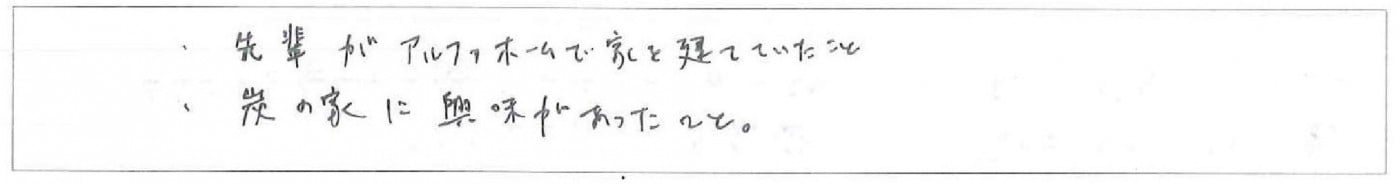 ・先輩がアルファホームで家を建てていたこと
・炭の家に興味があったこと。